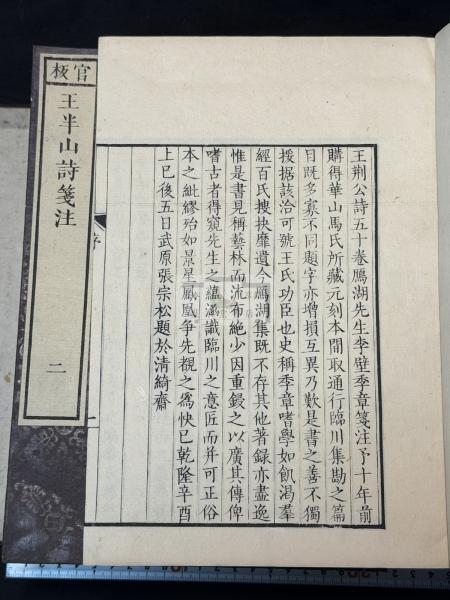 王荆公詩五十卷鴈湖先生李壁季章箋注予十年前
購得華山馬氏所藏元刻本間取通行臨川集勘之篇
目既多寡不同題字亦增損互異乃歎是書之善不獨
援據該洽可號王氏功臣也史稱季章嗜學如飢渴羣
經百氏搜抉靡遺今鴈湖集既不存其他著錄亦盡逸
惟是書見稱藝林而流布絶少因重鋟之以廣其傳俾
嗜古者得窺先生之藴涵識臨川之意匠而并可正俗
本之紕繆殆如景星鳳凰爭先覩之爲快已乾隆辛酉
上巳後五日武原張宗松題於清綺齋
序
二
官板
王半山詩箋注
二